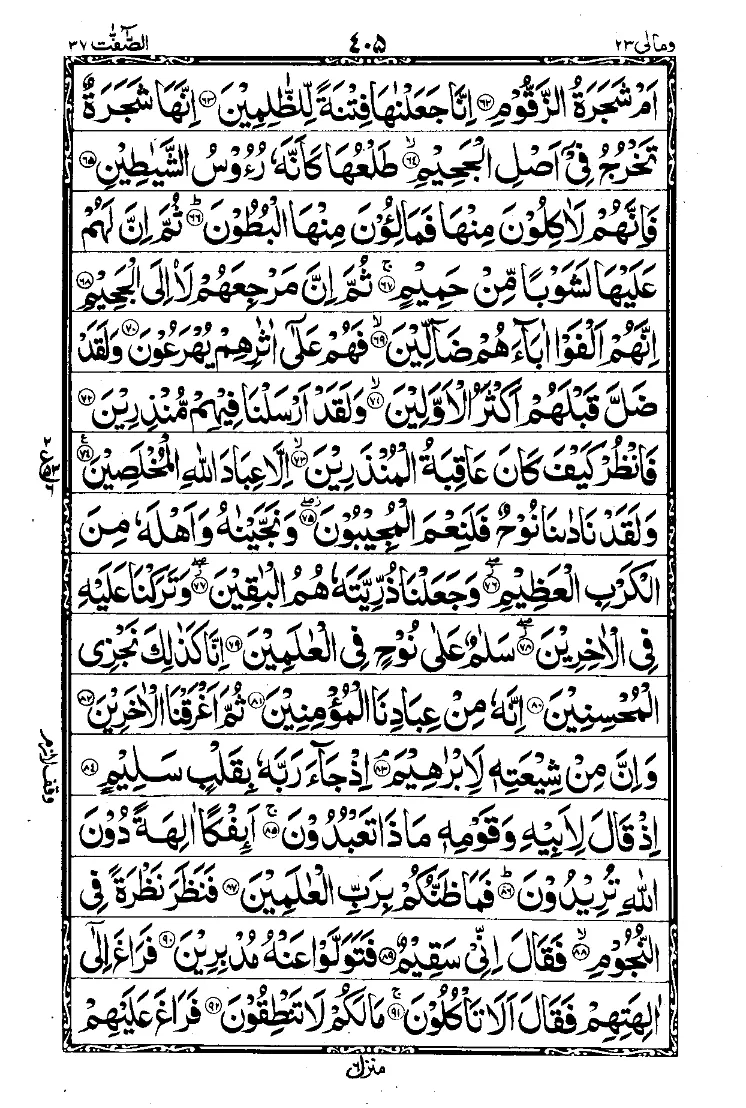 ومالی ۲۳
۴۰۵
الصّٰٓفّٰت ۳۷
اَمْ شَجَرَةُ الزَّقُّوْمِ ﴿۶۲﴾ اِنَّا جَعَلْنٰهَا فِتْنَةً لِّلظّٰلِمِيْنَ ﴿۶۳﴾ اِنَّهَا شَجَرَةٌ
تَخْرُجُ فِيْۤ اَصْلِ الْجَحِيْمِ ۙ﴿۶۴﴾ طَلْعُهَا كَاَنَّهٗ رُءُوْسُ الشَّيٰطِيْنِ ﴿۶۵﴾
فَاِنَّهُمْ لَاٰكِلُوْنَ مِنْهَا فَمَالِـُٔوْنَ مِنْهَا الْبُطُوْنَ ؕ﴿۶۶﴾ ثُمَّ اِنَّ لَهُمْ
عَلَيْهَا لَشَوْبًا مِّنْ حَمِيْمٍ ۚ﴿۶۷﴾ ثُمَّ اِنَّ مَرْجِعَهُمْ لَا۠اِلَى الْجَحِيْمِ ﴿۶۸﴾
اِنَّهُمْ اَلْفَوْا اٰبَآءَهُمْ ضَآلِّيْنَ ۙ﴿۶۹﴾ فَهُمْ عَلٰۤى اٰثٰرِهِمْ يُهْرَعُوْنَ ﴿۷۰﴾ وَلَقَدْ
ضَلَّ قَبْلَهُمْ اَكْثَرُ الْاَوَّلِيْنَ ۙ﴿۷۱﴾ وَلَقَدْ اَرْسَلْنَا فِيْهِمْ مُّنْذِرِيْنَ ﴿۷۲﴾
فَانْظُرْ كَيْفَ كَانَ عَاقِبَةُ الْمُنْذَرِيْنَ ۙ﴿۷۳﴾ اِلَّا عِبَادَ اللّٰهِ الْمُخْلَصِيْنَ ﴿۷۴﴾ع
وَلَقَدْ نَادٰىنَا نُوْحٌ فَلَنِعْمَ الْمُجِيْبُوْنَ ۖ﴿۷۵﴾ وَنَجَّيْنٰهُ وَاَهْلَهٗ مِنَ
الْكَرْبِ الْعَظِيْمِ ۖ﴿۷۶﴾ وَجَعَلْنَا ذُرِّيَّتَهٗ هُمُ الْبٰقِيْنَ ۖ﴿۷۷﴾ وَتَرَكْنَا عَلَيْهِ
فِي الْاٰخِرِيْنَ ۖ﴿۷۸﴾ سَلٰمٌ عَلٰى نُوْحٍ فِي الْعٰلَمِيْنَ ﴿۷۹﴾ اِنَّا كَذٰلِكَ نَجْزِي
الْمُحْسِنِيْنَ ﴿۸۰﴾ اِنَّهٗ مِنْ عِبَادِنَا الْمُؤْمِنِيْنَ ﴿۸۱﴾ ثُمَّ اَغْرَقْنَا الْاٰخَرِيْنَ ﴿۸۲﴾
وَاِنَّ مِنْ شِيْعَتِهٖ لَاِبْرٰهِيْمَ ۘ﴿۸۳﴾ اِذْ جَآءَ رَبَّهٗ بِقَلْبٍ سَلِيْمٍ ﴿۸۴﴾
اِذْ قَالَ لِاَبِيْهِ وَقَوْمِهٖ مَاذَا تَعْبُدُوْنَ ۚ﴿۸۵﴾ اَئِفْكًا اٰلِهَةً دُوْنَ
اللّٰهِ تُرِيْدُوْنَ ؕ﴿۸۶﴾ فَمَا ظَنُّكُمْ بِرَبِّ الْعٰلَمِيْنَ ﴿۸۷﴾ فَنَظَرَ نَظْرَةً فِي
النُّجُوْمِ ۙ﴿۸۸﴾ فَقَالَ اِنِّيْ سَقِيْمٌ ﴿۸۹﴾ فَتَوَلَّوْا عَنْهُ مُدْبِرِيْنَ ﴿۹۰﴾ فَرَاغَ اِلٰۤى
اٰلِهَتِهِمْ فَقَالَ اَلَا تَاْكُلُوْنَ ۚ﴿۹۱﴾ مَا لَكُمْ لَا تَنْطِقُوْنَ ﴿۹۲﴾ فَرَاغَ عَلَيْهِمْ
وقف لازم
منزل ۶